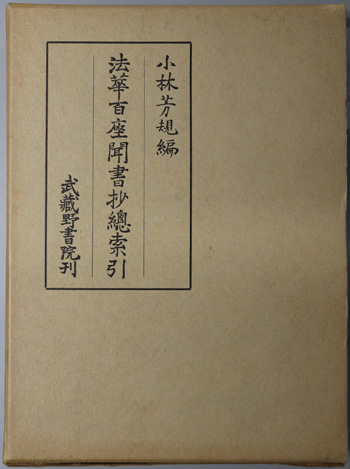 小林芳規編
法華百座聞書抄總索引
武藏野書院刊